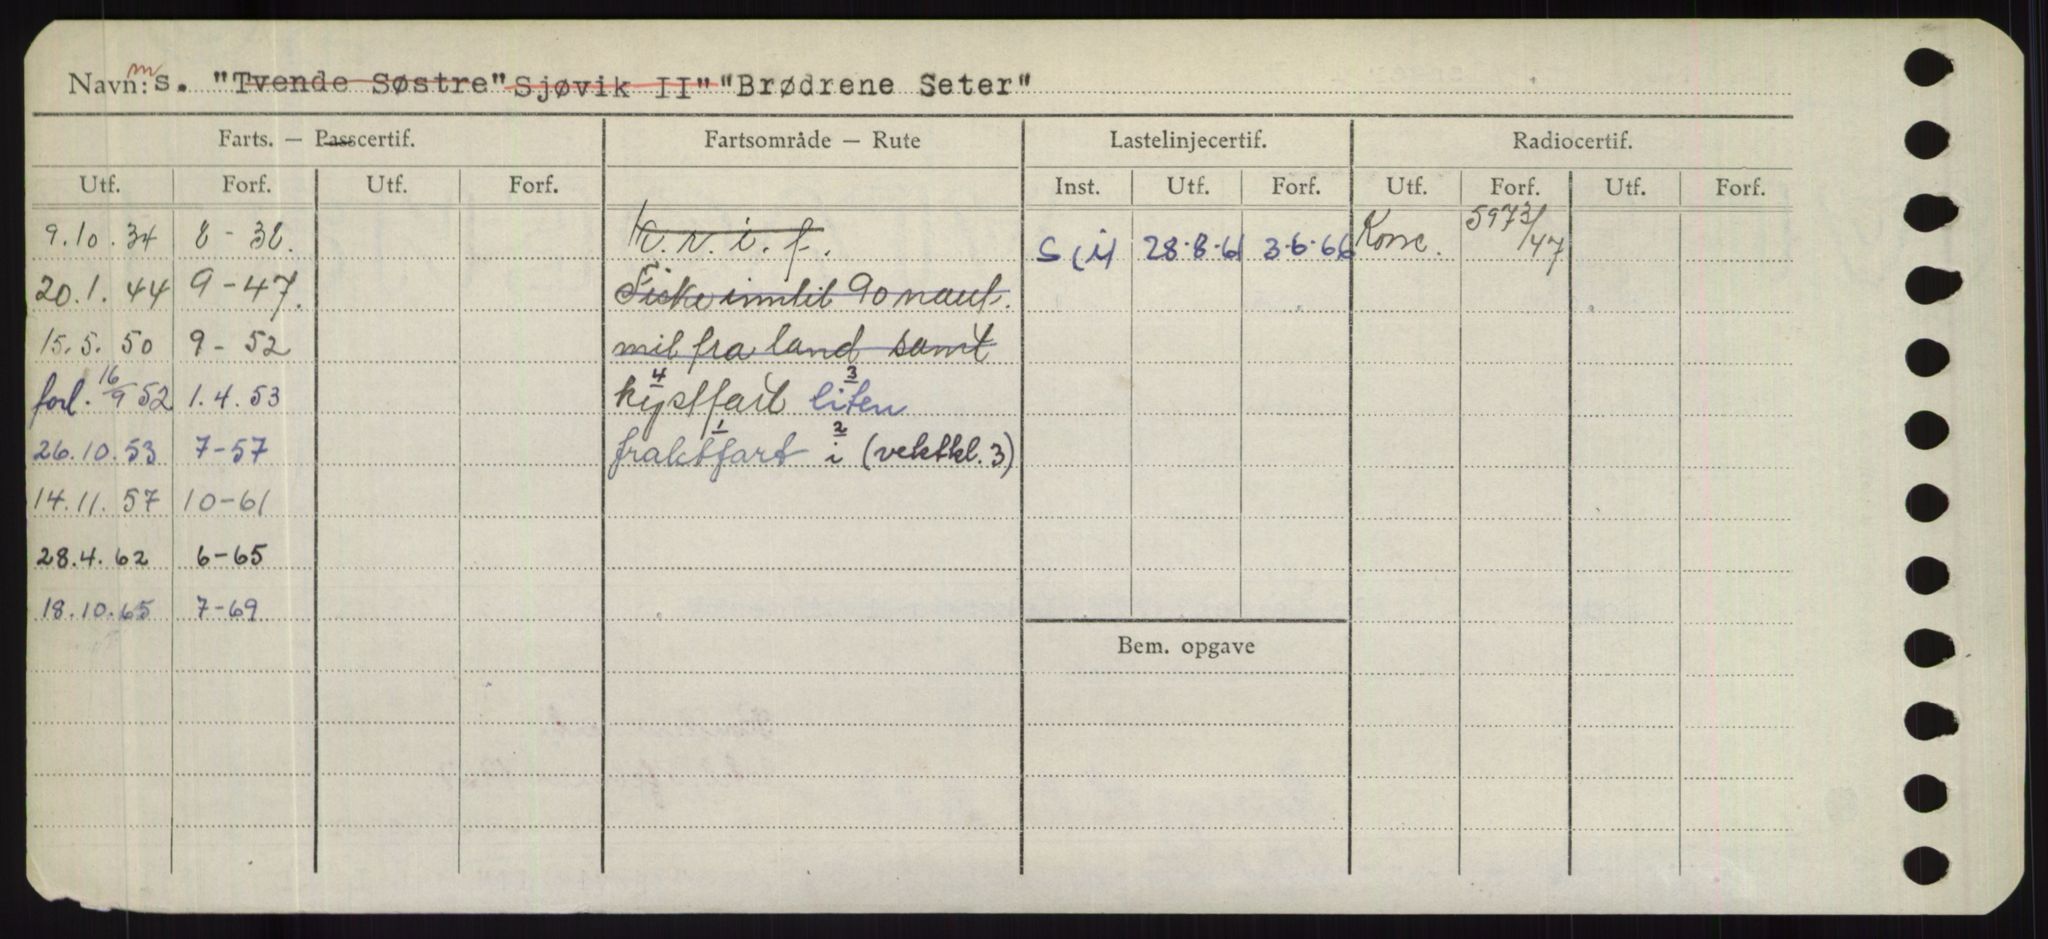 Navn: ms. "Tvende Søstre" Sjøvik II" "Brødrene Seter"
Farts. — Passcertif. Fartsområde — Rute Lastelinjecertif. Radiocertif.
Utf. Forf. Utf. Forf. Inst. Utf. Forf. Utf. Forf. Utf. Forf.
9.10.34 8-38. S (i) 28.8.61 3.6.66 5973/47
20.1.44 9-47. Fiske inntil 90 naut.
15.5.50 9-52 mil fra land samt
forl. 16/9 52 1.4.53 kystfart 4 liten 3
26.10.53 7-57 fraktfart 1 i 2 (vektkl. 3)
14.11.57 10-61
28.4.62 6-65
18.10.65 7-69
Bem. opgave